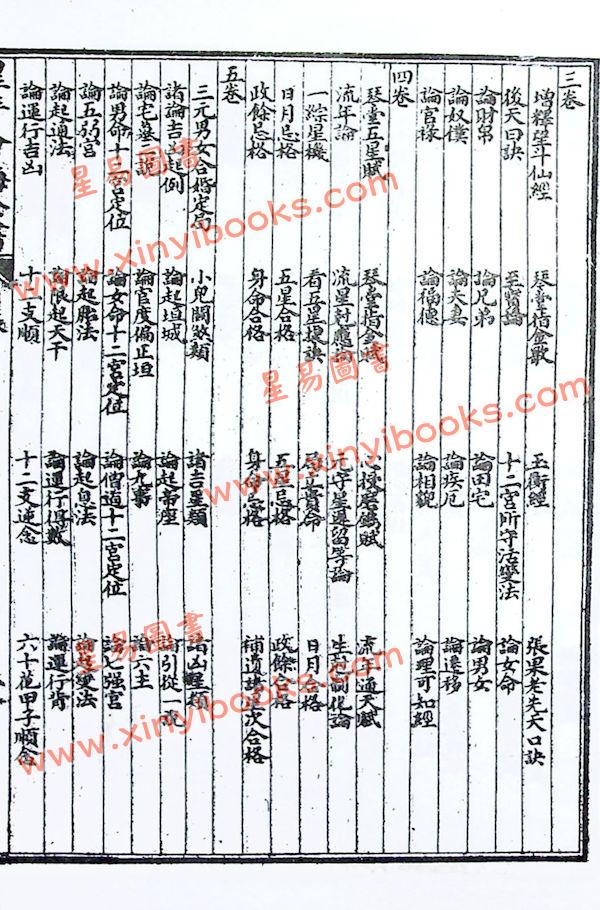 三卷
增釋望斗仙經 琴臺指金歌 玉衡經 張果老先天口訣
後天口訣 至寶論 十二宮所守活變法 論女命
論財帛 論兄弟 論田宅 論男女
論奴僕 論夫妻 論疾厄 論遷移
論官祿 論福德 論相貌 論理可知經
四卷
琴臺五星賦 琴臺指金賦 流年通天賦
流年論 流星對應 元守星遲留等論 生 制化論
一綜星機 看五星 訣 命 日月合格
日月忌格 五星合格 五星忌格 政餘合格
政餘忌格 身命合格 身命忌格 補遺諸 次合格
五卷
三元男女合婚定局 小兒關煞類 諸吉星類 諸凶星類
諸論吉凶起例 論起垣城 論起帝座 論引從
論宅墓二說 論官度偏正垣 論九事 論六主
論男命十二宮定位 論女命十二宮定位 論僧道十二宮定位 論七强宮
論五弱宮 論起胎法 論起息法 論起變法
論起通法 論限起天干 論運行 論運行背
論運行吉凶 十二支順 十二支逆念 六十花甲子順念
星易圖書
www.xinyibooks.com
星易圖書
www.xinyibooks.com
星易圖書
www.xinyibooks.com